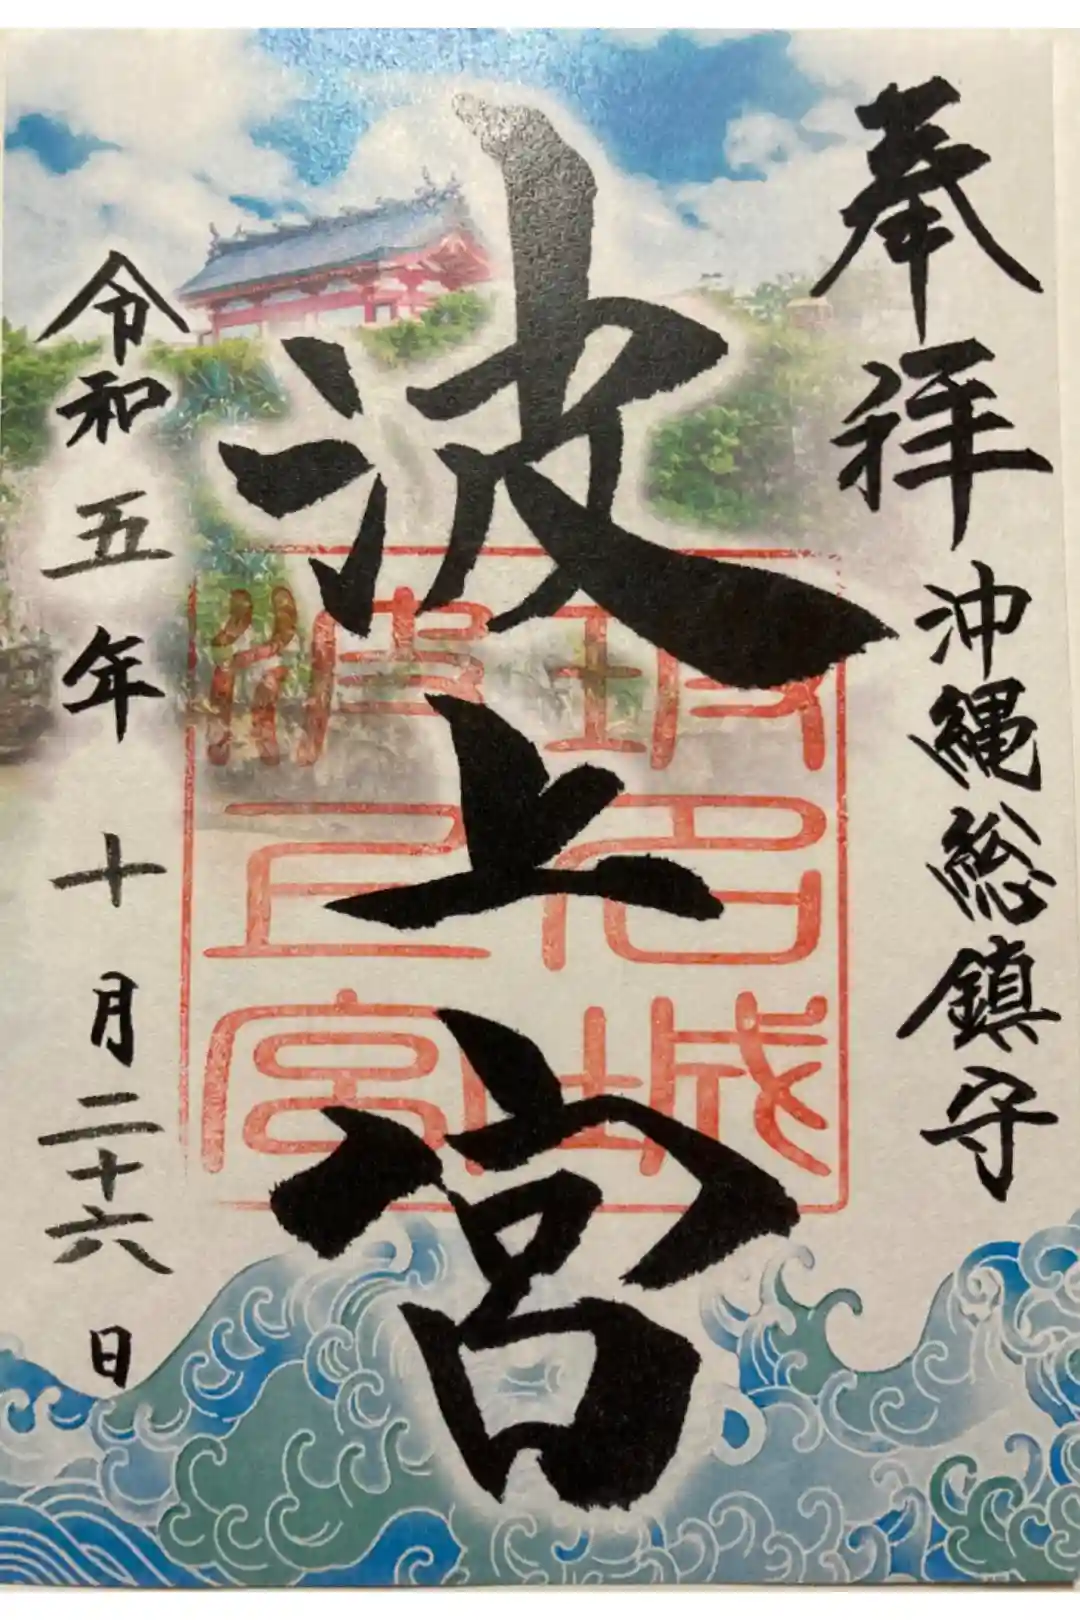 奉拝
沖縄総鎮守
波上宮
琉球
名城
波上宮
令和五年十月二十六日